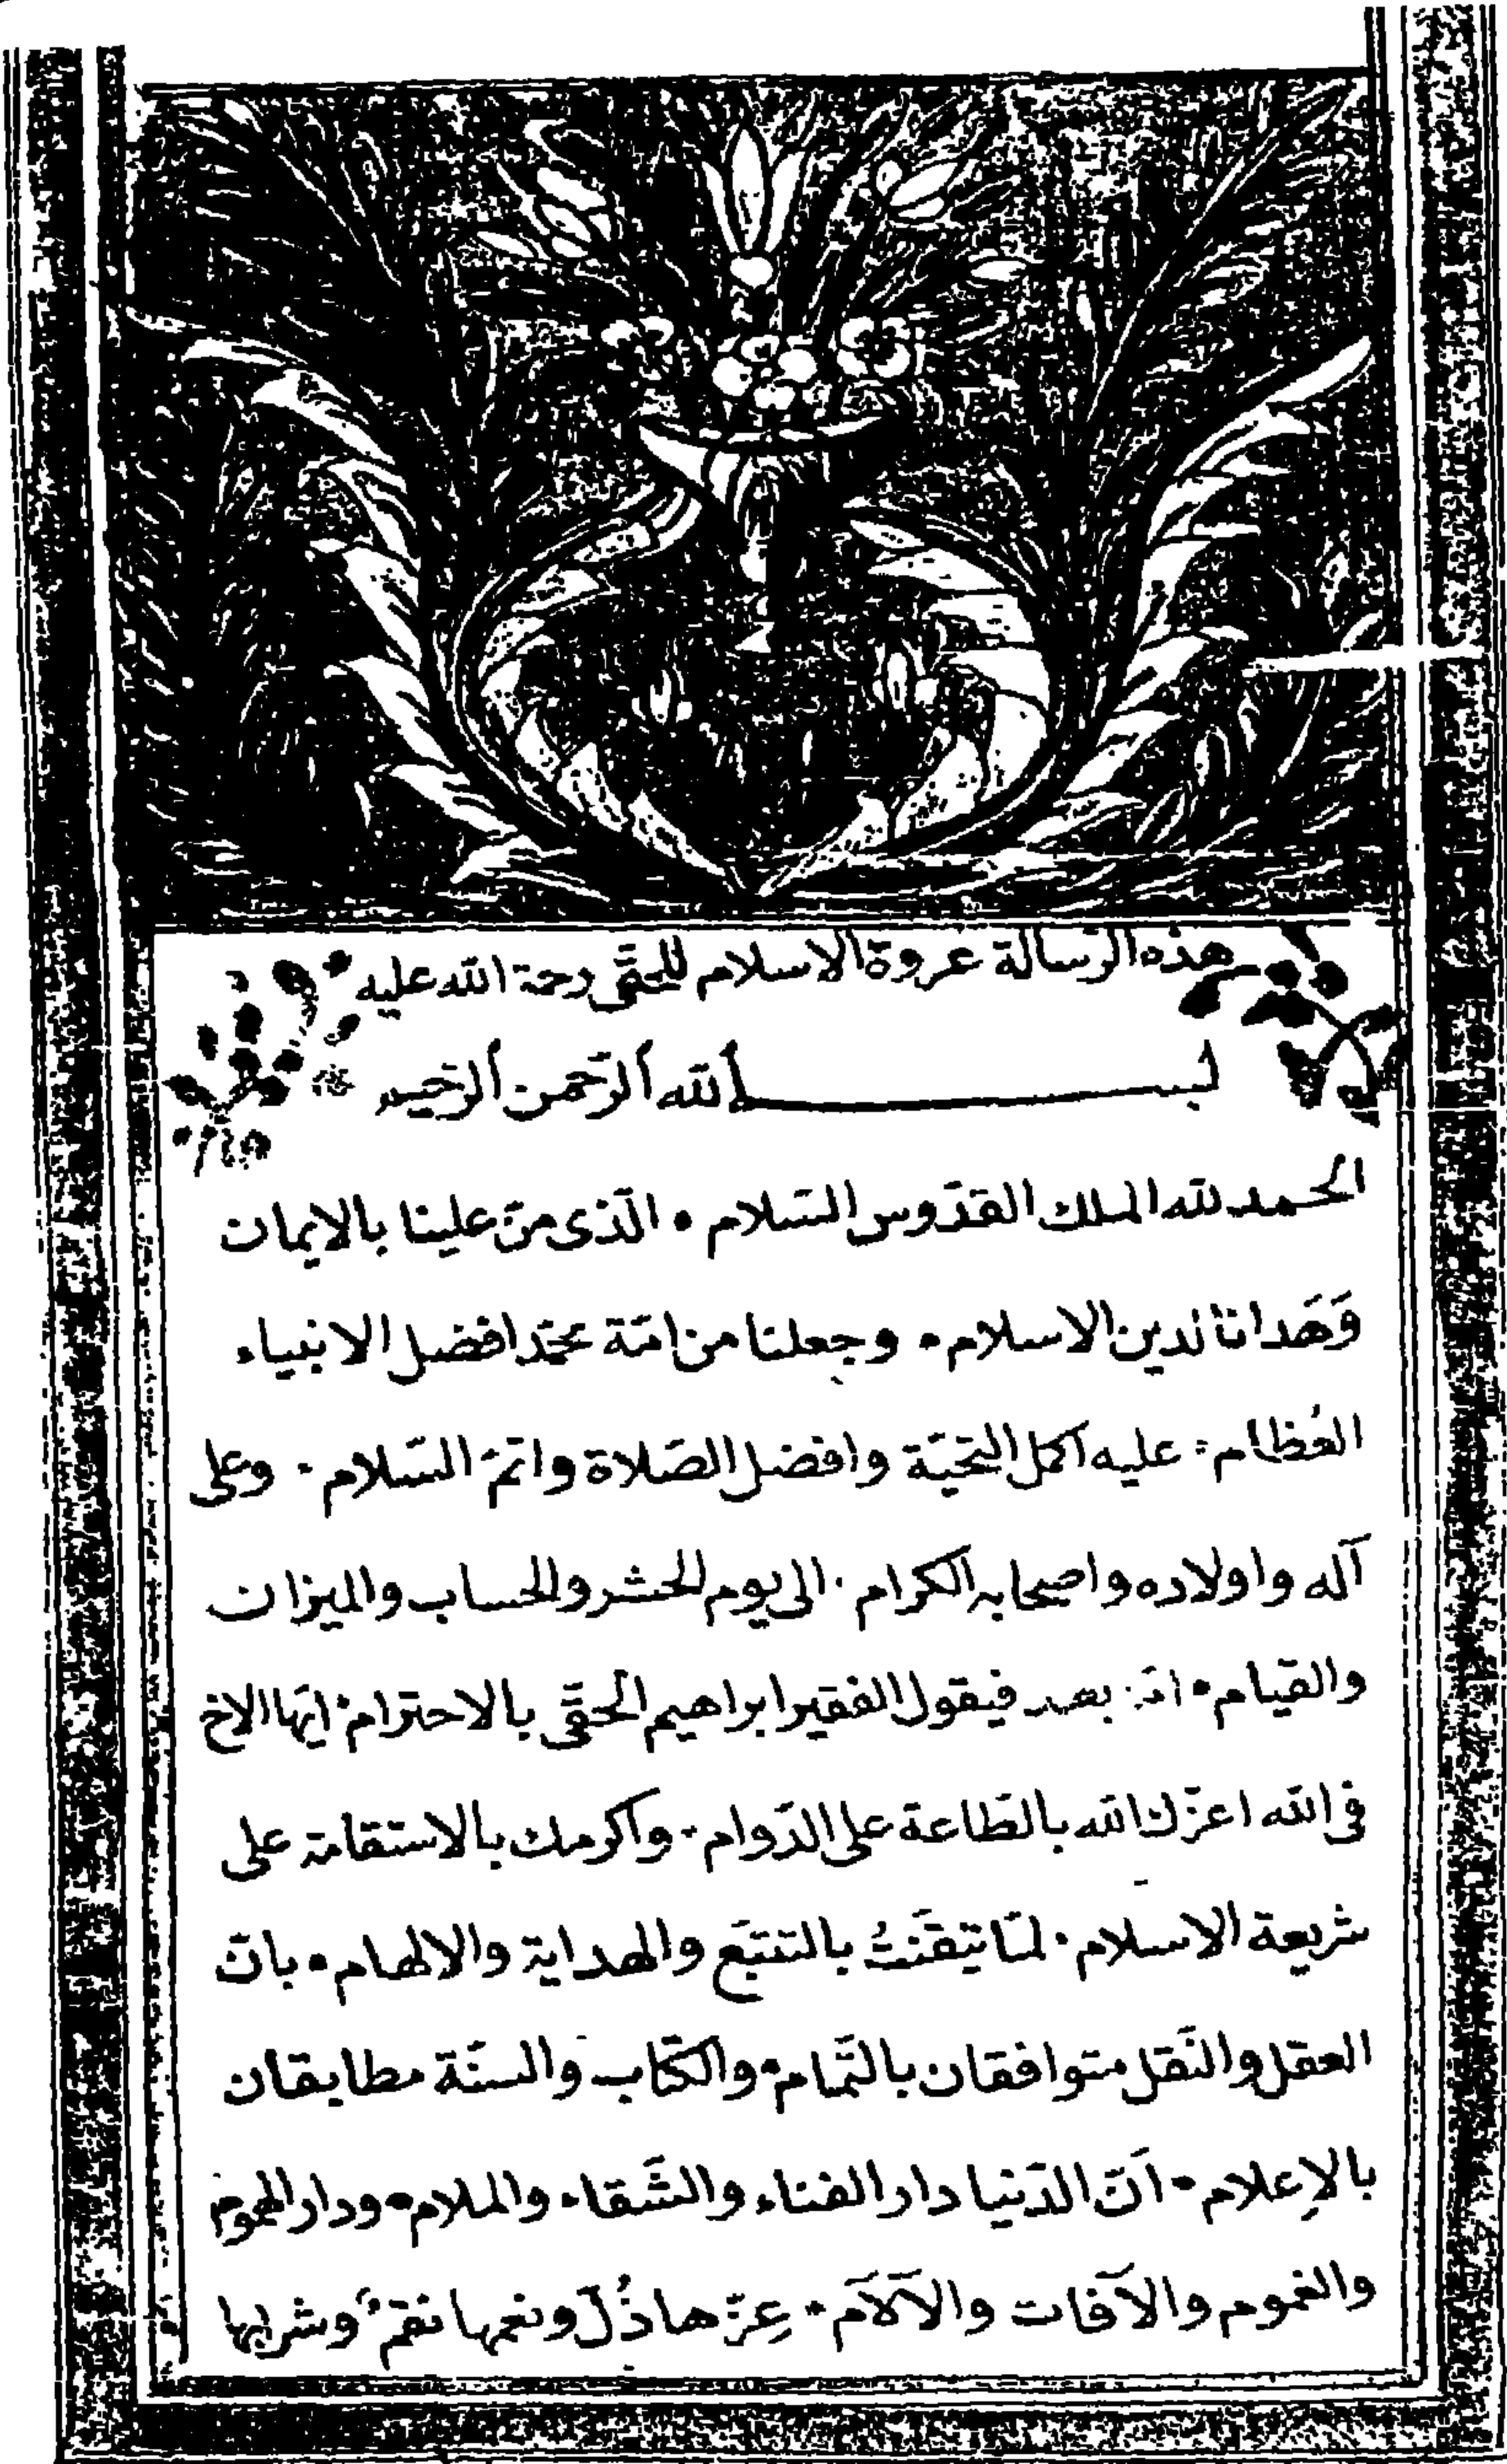 هذه الرّسالة عروة الاسلام للحقّى رحمة الله عليه
بسم الله الرّحمن الرّحيم
الحمد لله الملك القدّوس السّلام • الّذى منّ علينا بالايمان
وَهَدانا لدين الاسلام • وجعلنا من امّة محمّد افضل الانبياء
العُظام • عليه اكمل التحيّة وافضل الصّلاة واتمّ السّلام • وعلى
آله واولاده واصحابه الكرام • الى يوم الحشر والحساب والميزان
والقيام • امّا بعد فيقول الفقير ابراهيم الحقّى بالاحترام • ايّها الاخ
فى الله اعزّك الله بالطّاعة على الدّوام • واكرمك بالاستقامة على
شريعة الاسلام • لمّا تيقّنتُ بالتتبّع والهداية والالهام • بانّ
العقل والنّقل متوافقان بالتّمام • والكتاب والسنّة مطابقان
بالاِعلام • انّ الدّنيا دار الفناء والشّقاء والملام • ودار الهموم
والغموم والآفات والآلام • عِزّها ذُلّ ونعمها نقم • وشرابها